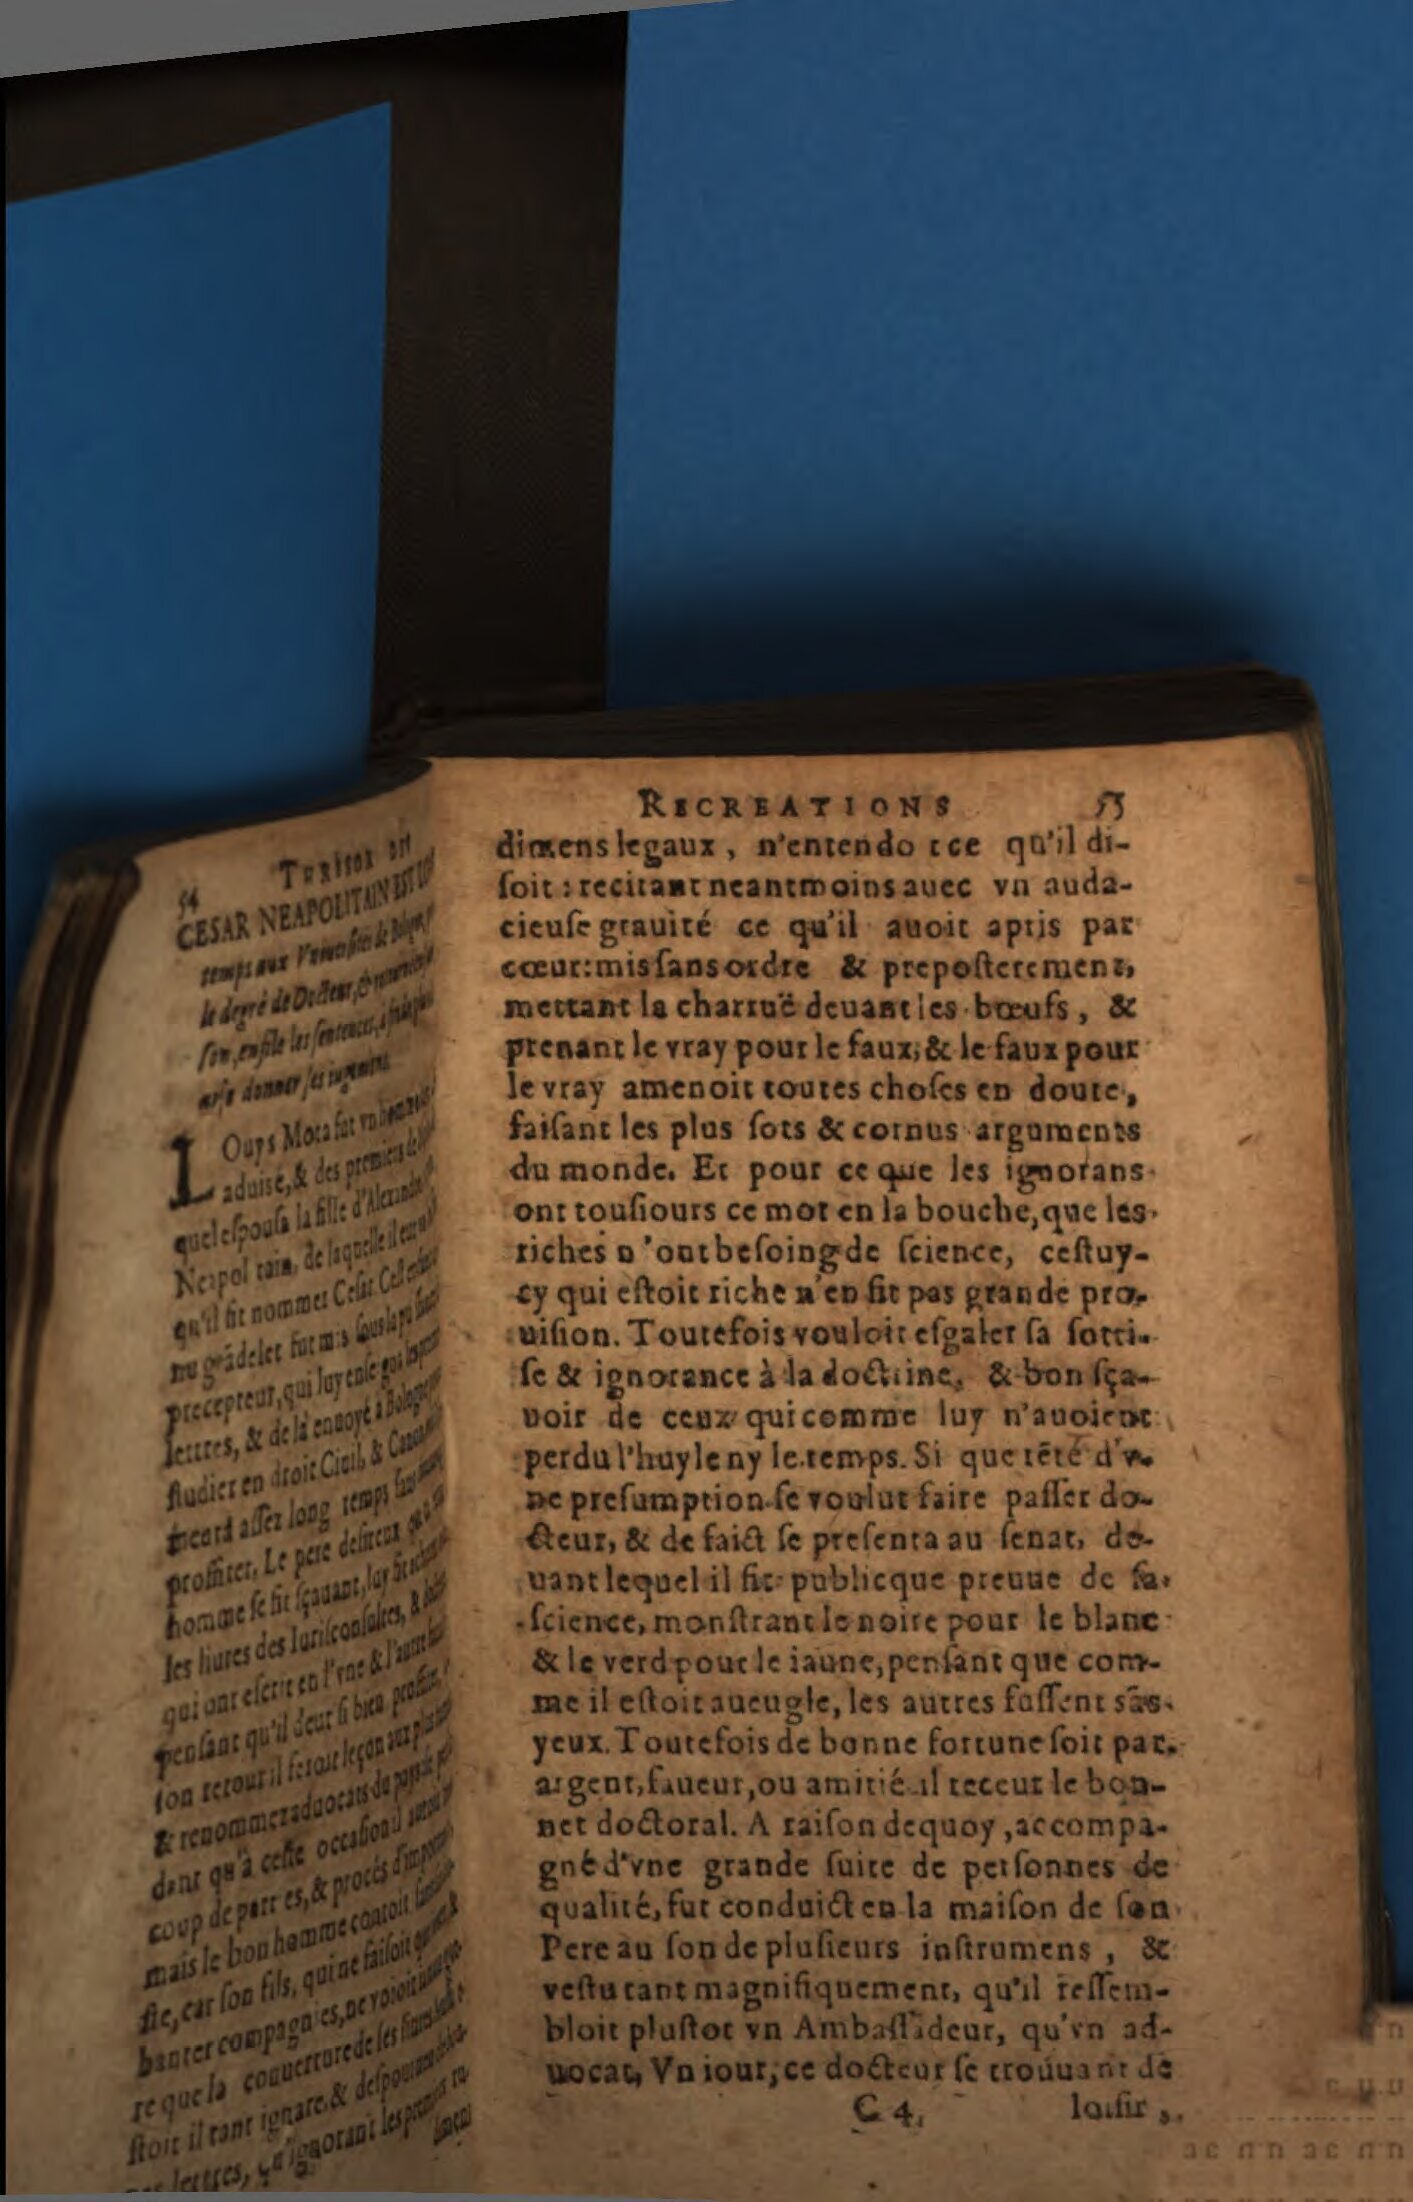 54 Tresor des
CESAR NEAPOLITAIN EST
temps aux Vniuersités de
le degré de Docteur, &
son, enfile les sentences,
donner ses iugemens
LOuys Mota fut vn
aduisé, & des premiers de
quel espousa la fille d'Alexandre
Neapol tain, de laquelle il eut
qu'il fit nommer Cesar. Cest
nu grãdelet fut mis sous la
precepteur, qui luy enseigna les
lettres, & de là enuoyé à Bologne
studier en droit Ciuil, & Canon
assez long temps sans
proffiter. Le pere desireux
homme se fit sçauant, luy fit
les liures des Iurisconsultes, &
qui ont escrit en l'vne & l'autre
pensant qu'il deut si bien profiter,
son retour il feroit leçon aux plus
& renommez aduocats du pays
dant qu'à ceste occasion il auroit
coup de parties, & procés d'import
mais le bon homme contoit sans
ste, car son fils, qui ne faisoit que
hanter compagnies, ne
re que la couuerture de ses liures
stoit il tant ignare, &
lettres, qu'ignorant les premiers ru-
dimens
RECREATIONS 55
dimens legaux, n'entendo t ce qu'il di-
soit : recitant neantmoins auec vn auda-
cieuse grauité ce qu'il auoit apris par
cœur: mis sans ordre & preposterement,
mettant la charruë deuant les bœufs, &
prenant le vray pour le faux, & le faux pour
le vray amenoit toutes choses en doute,
faisant les plus sots & cornus arguments
du monde. Et pour ce que les ignorans
ont tousiours ce mot en la bouche, que les
riches n'ont besoing de science, cestuy-
cy qui estoit riche n'en fit pas grande pro-
uision. Toutefois vouloit esgaler sa sotti-
se & ignorance à la doctrine, & bon sça-
uoir de ceux qui comme luy n'auoient
perdu l'huyle ny le temps. Si que tẽté d'v-
ne presumption se voulut faire passer do-
cteur, & de faict se presenta au senat, de-
uant lequel il fit publicque preuue de sa
science, monstrant le noire pour le blanc
& le verd pour le iaune, pensant que com-
me il estoit aueugle, les autres fussent sãs
yeux. Toutefois de bonne fortune soit par
argent, faueur, ou amitié il receut le bon-
net doctoral. A raison dequoy, accompa-
gné d'vne grande suite de personnes de
qualité, fut conduict en la maison de son
Pere au son de plusieurs instrumens, &
vestu tant magnifiquement, qu'il ressem-
bloit plustot vn Ambassadeur, qu'vn ad-
uocat, Vn iour, ce docteur se trouuant de
C 4, loisir,